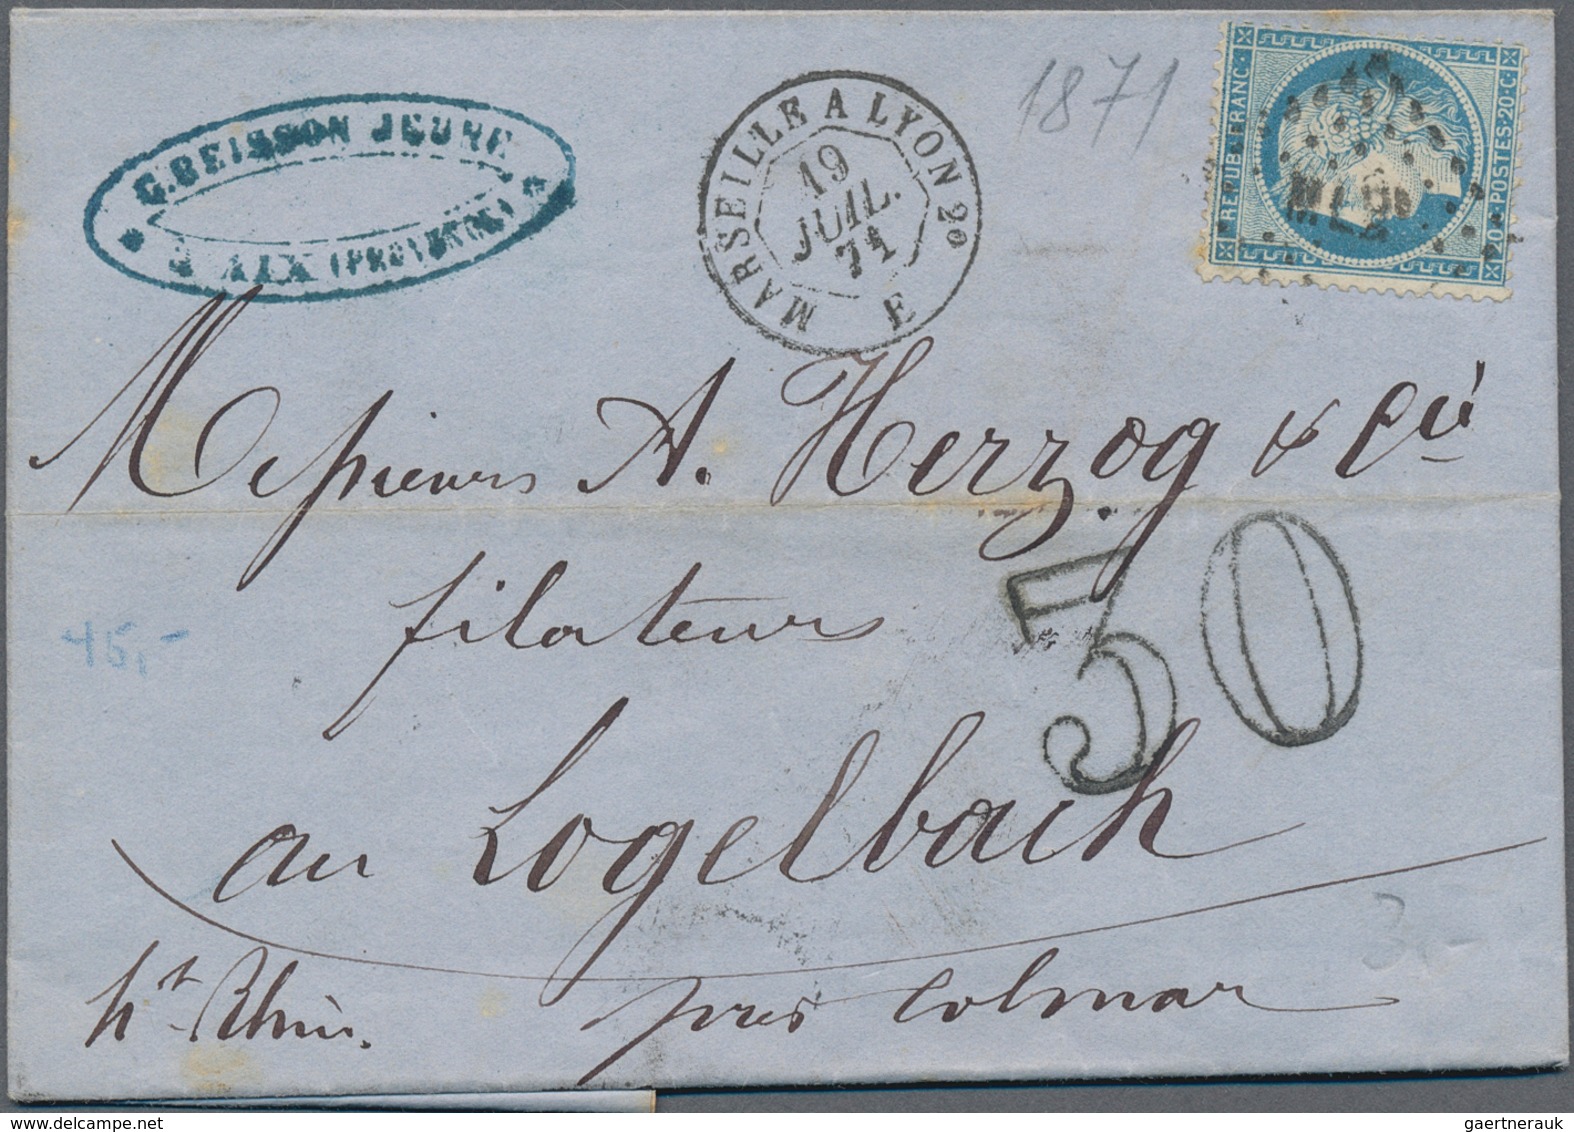 C. BEISSON JEUNE
À AIX (PROVENCE)
MARSEILLE A LYON 2°
19
JUIL.
71
E
1871
REPUB. FRANC.
POSTES·20·C·
Messieurs A. Herzog & Cie
filateurs
30
au Logelbach
45,-
3,-
ht Rhin.
près Colmar
gaertnerauk